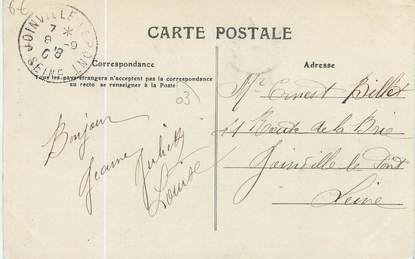 6€
JOINVILLE-LE-PONT
7 *
8 -9
08
SEINE
CARTE POSTALE
Correspondance
Tous les pays étrangers n'acceptent pas la correspondance
au recto se renseigner à la Poste
Adresse
Bonjour
Jeanne Juliette
Louise
Mr Ernest Billet
11 Route de la Brie
Joinville le Pont
Seine